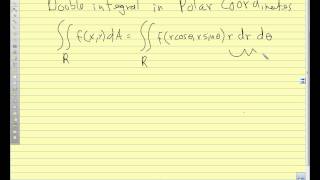 Double integral in Polar Coordinates
∬ f(x,y)dA = ∬ f(rcosθ,rsinθ) r dr dθ
R R